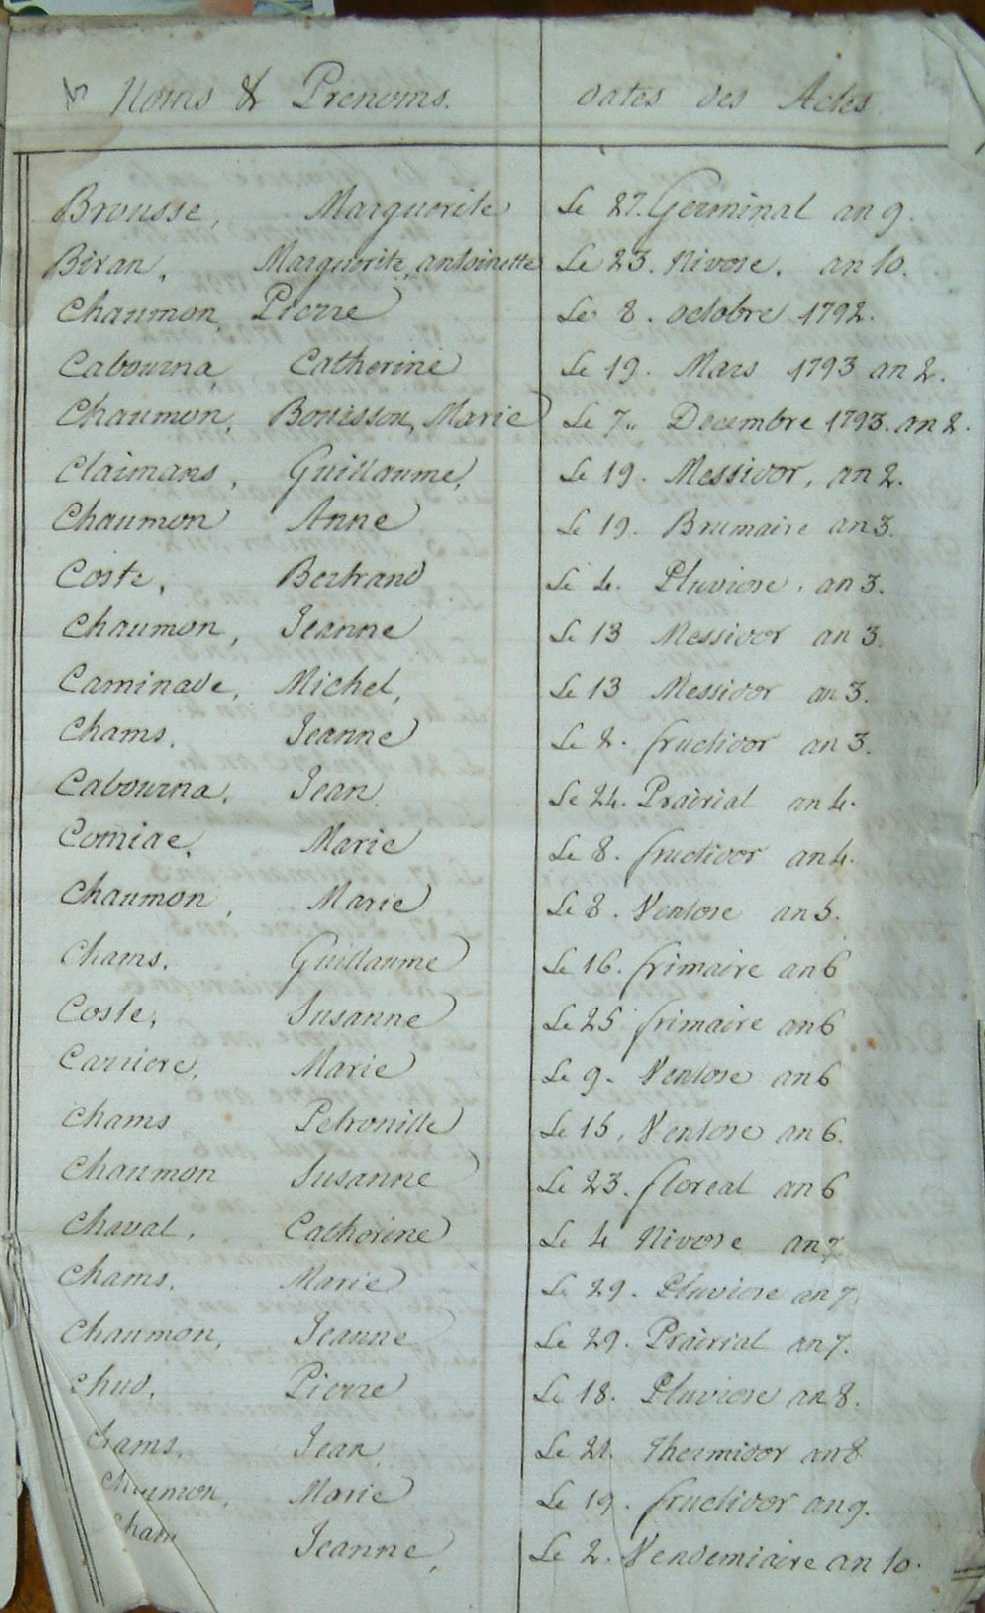 Noms & Prenoms. dates des Actes
Brousse, Marguerite Le 27. Germinal an 9.
Biran, Marguerite, antoinette Le 23. Nivose. an 10.
Chaumon, Pierre Le 8. octobre 1792.
Cabourna, Catherine Le 19. Mars 1793 an 2.
Chaumon, Bouisson, Marie Le 7. Decembre 1793. an 2.
Claimans, Guillaume, Le 19. Messidor, an 2.
Chaumon Anne Le 19. Brumaire an 3.
Coste, Bertrand Le 4. Pluviose. an 3.
Chaumon, Jeanne Le 13 Messidor an 3.
Caminade, Michel, Le 13 Messidor an 3.
Chams, Jeanne Le 2. fructidor an 3.
Cabourna, Jean Le 24. Prairial an 4.
Comiac, Marie Le 8. fructidor an 4.
Chaumon, Marie Le 8. Ventose an 5.
Chams, Guillaume Le 16. frimaire an 6
Coste, Susanne Le 25 frimaire an 6
Carriere, Marie Le 9. Ventose an 6
Chams Petronille Le 15. Ventose an 6.
Chaumon Susanne Le 23. floreal an 6
Chaval, Catherine Le 4 Nivose an 7.
Chams, Marie Le 29. Pluviose an 7.
Chaumon, Jeanne Le 29. Prairial an 7.
Chud, Pierre Le 18. Pluviose an 8.
Chams, Jean, Le 21. Thermidor an 8
Chaumon, Marie Le 19. fructidor an 9.
Cham Jeanne, Le 2. Vendemiaire an 10.